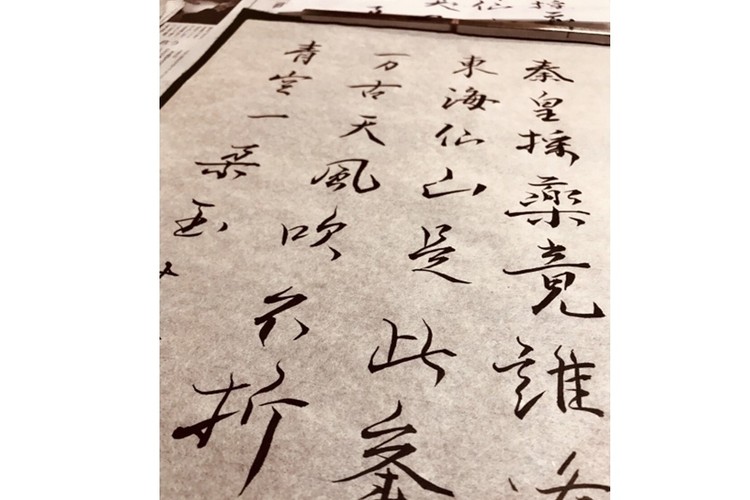 秦皇採藥竟難
東海仙山是此峯
万古天風吹不折
青空一朵玉